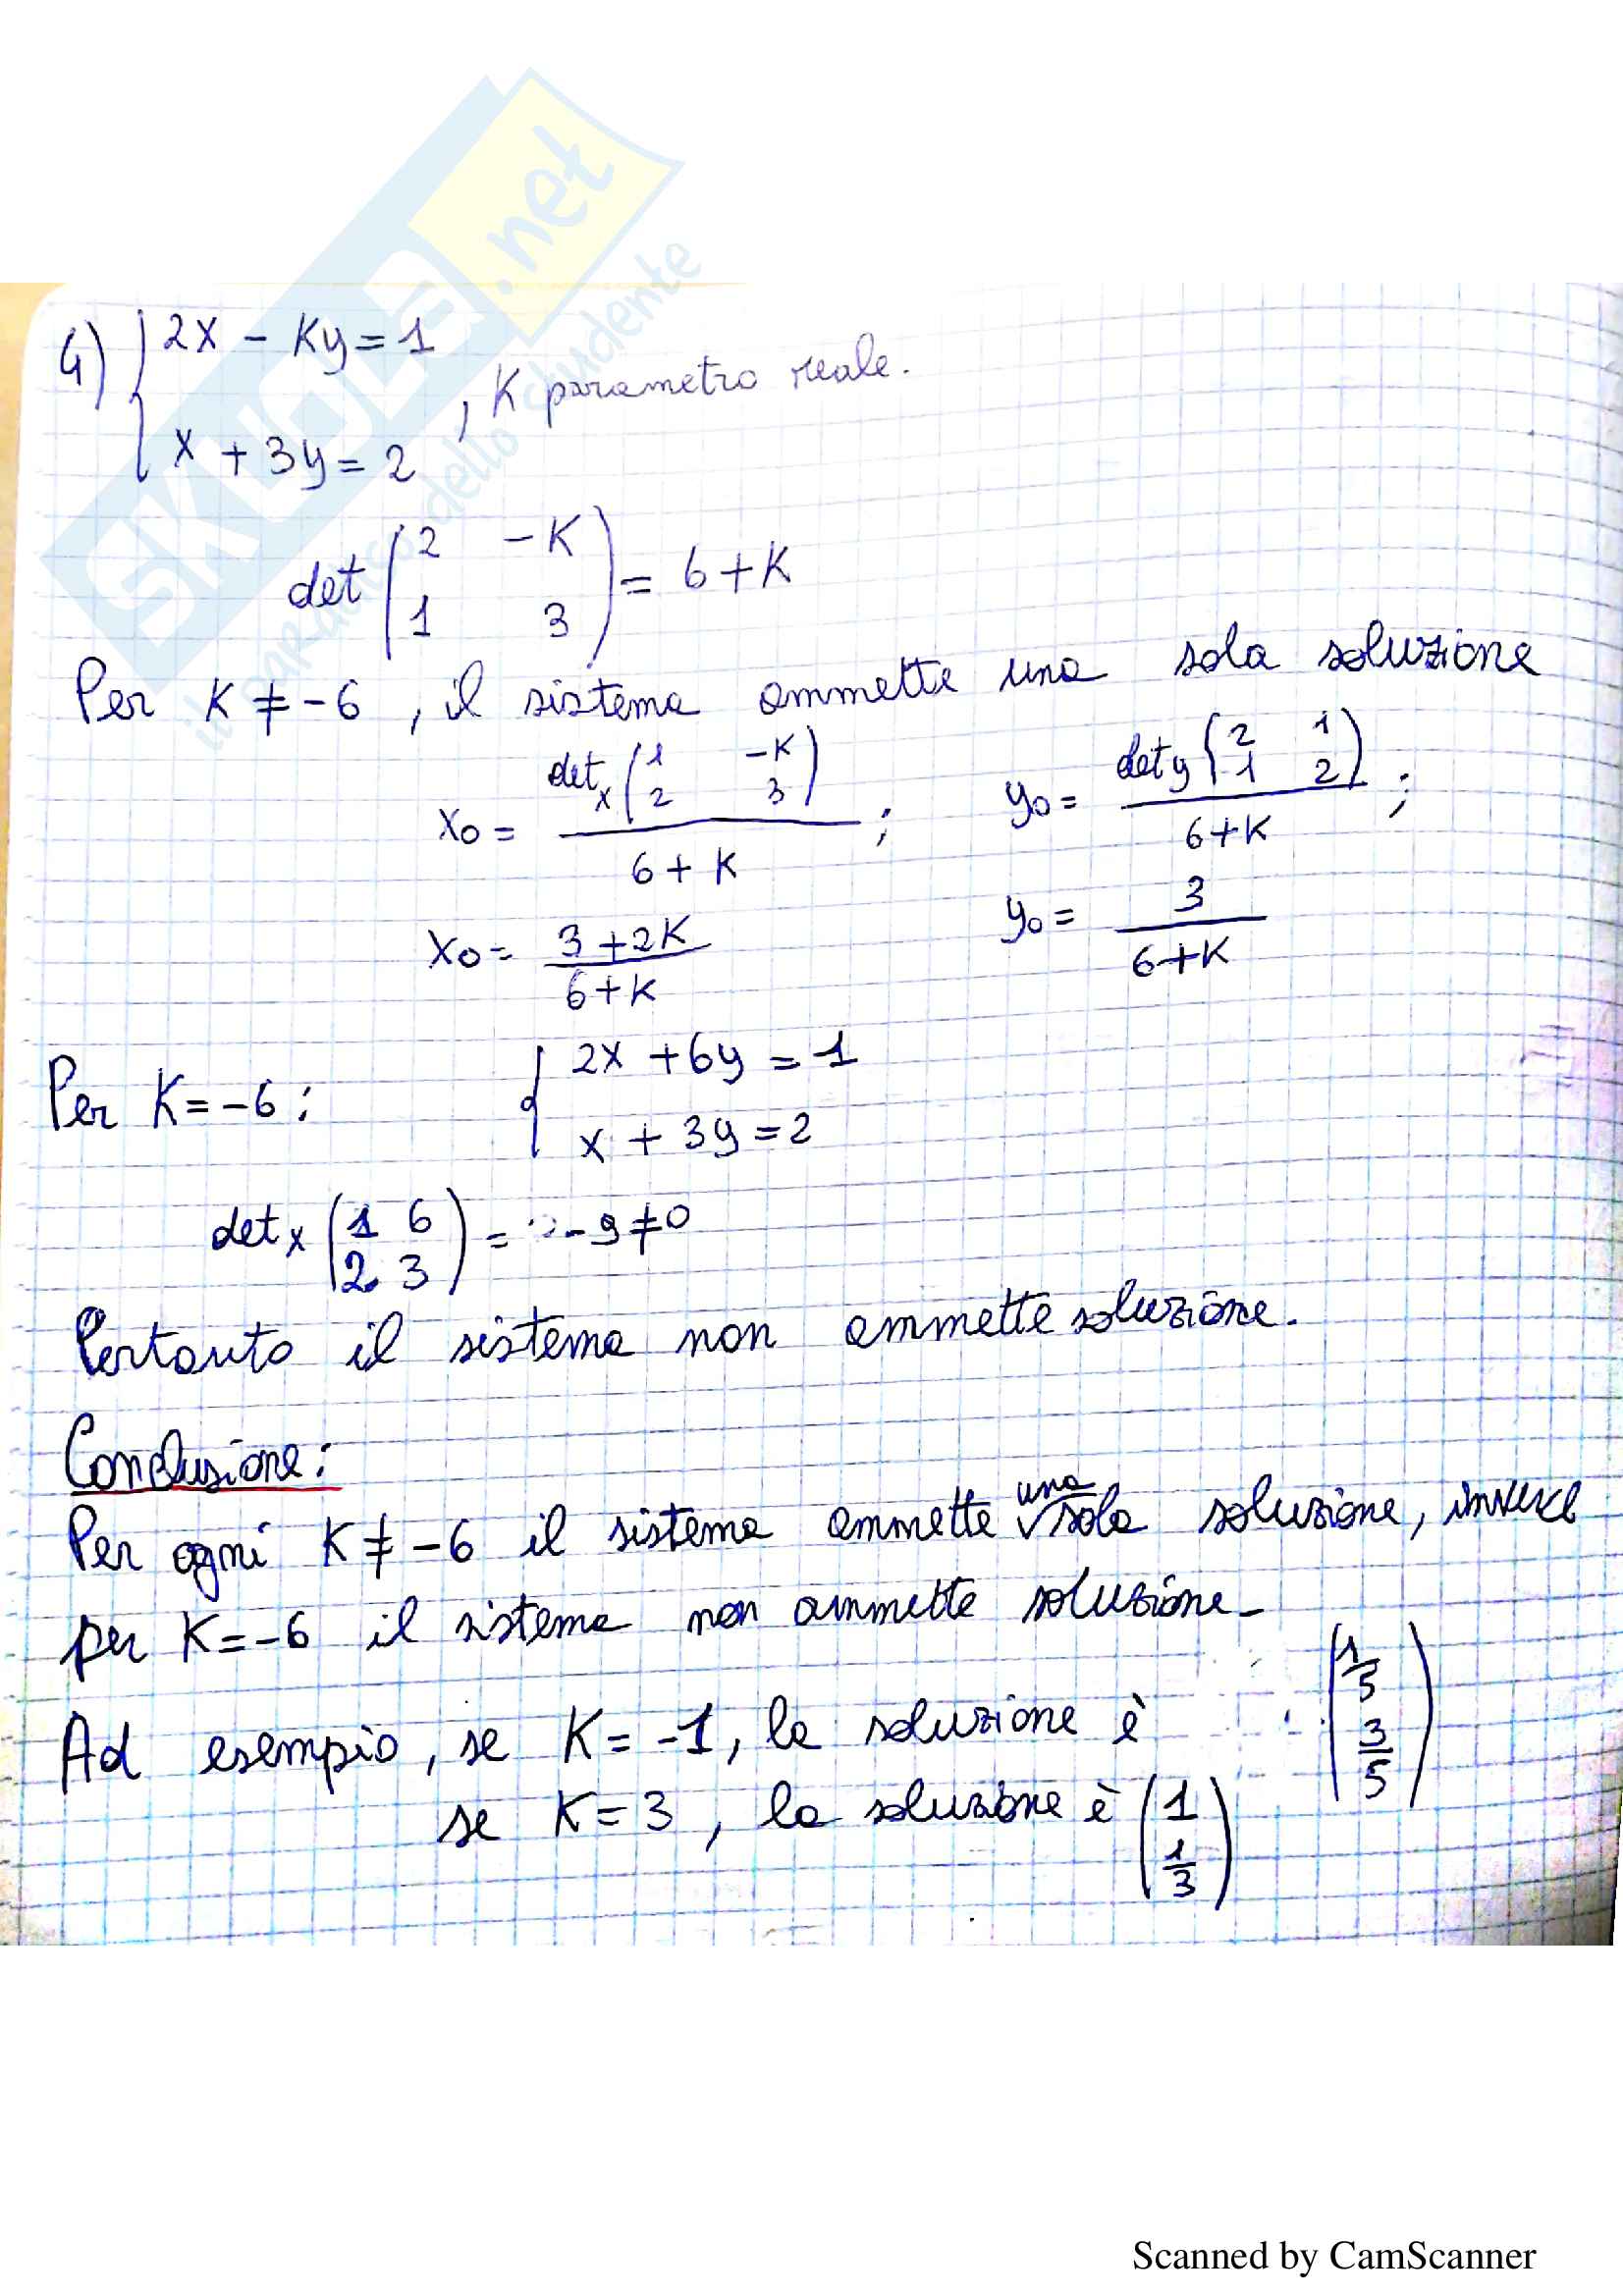 SKUOLA.net
il paradiso dello studente
4) { 2x - Ky = 1
x + 3y = 2 , K parametro reale.
det ( 2 -K
1 3 ) = 6+K
Per K ≠ -6, il sistema ammette una sola soluzione
x₀ = detₓ ( 1 -K
2 3 ) / 6+K ; y₀ = det y ( 2 1
1 2 ) / 6+K ;
x₀ = 3+2K / 6+K y₀ = 3 / 6+K
Per K = -6: { 2x + 6y = 1
x + 3y = 2
detₓ ( 1 6
2 3 ) = -9 ≠ 0
Pertanto il sistema non ammette soluzione.
Conclusione:
Per ogni K ≠ -6 il sistema ammette una sola soluzione, invece
per K = -6 il sistema non ammette soluzione.
Ad esempio, se K = -1, la soluzione è ( 1/5
3/5 )
se K = 3, la soluzione è ( 1
1/3 )
Scanned by CamScanner